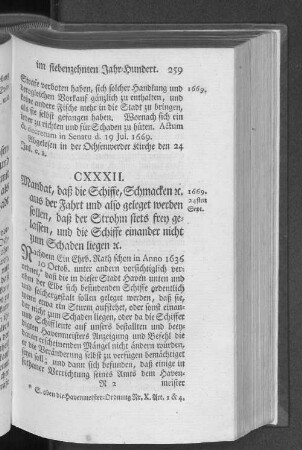 im siebenzehnten Jahr-Hundert. 259
Strafe verboten haben, sich solcher Handlung und 1669.
dergleichen Vorkauf gänzlich zu enthalten, und
keine andere Fische mehr in die Stadt zu bringen,
als sie selbst gefangen haben. Wornach sich ein
jeder zu richten und für Schaden zu hüten. Actum
& decretum in Senatu d. 19 Jul. 1669.
Abgelesen in der Ochsenwerder Kirche den 24
Jul. e. a.
CXXXII.
Mandat, daß die Schiffe, Schmacken ꝛc. 1669.
aus der Fahrt und also geleget werden 24sten
sollen, daß der Strohm stets frey ge- Sept.
lassen, und die Schiffe einander nicht
zum Schaden liegen ꝛc.
Nachdem Ein Ehrb. Rath schon in Anno 1636
10 Octob. unter andern vorsichtiglich ver-
ordnet, daß die in dieser Stadt Haven unten und
oben der Elbe sich befindenden Schiffe ordentlich
und solchergestalt sollen geleget werden, daß sie,
wenn etwa ein Sturm aufstehet, oder sonst einan-
der nicht zum Schaden liegen, oder da die Schiffer
auf unsers bestallten und beey-
digten Havenmeisters Anzeigung und Befehl die
er erscheinenden Mängel nicht ändern würden,
er die Veränderung selbst zu verfügen bemächtiget
seyn soll; und dann sich befunden, daß einige in
sothaner Verrichtung seines Amts dem Haven-
R 2 meister
* S. oben die Havenmeister-Ordnung Nr. X. Art. 2 & 4.